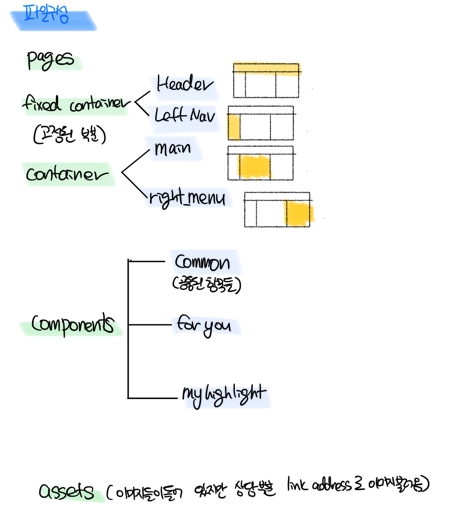 파일구성
pages
fixed container
(고정된 부분)
Header
Left Nav
container
main
right_menu
components
common
(공통된 항목들)
for you
my highlight
assets (이미지들이 들어 있지만 상당부분 link address로 이미지불러옴)